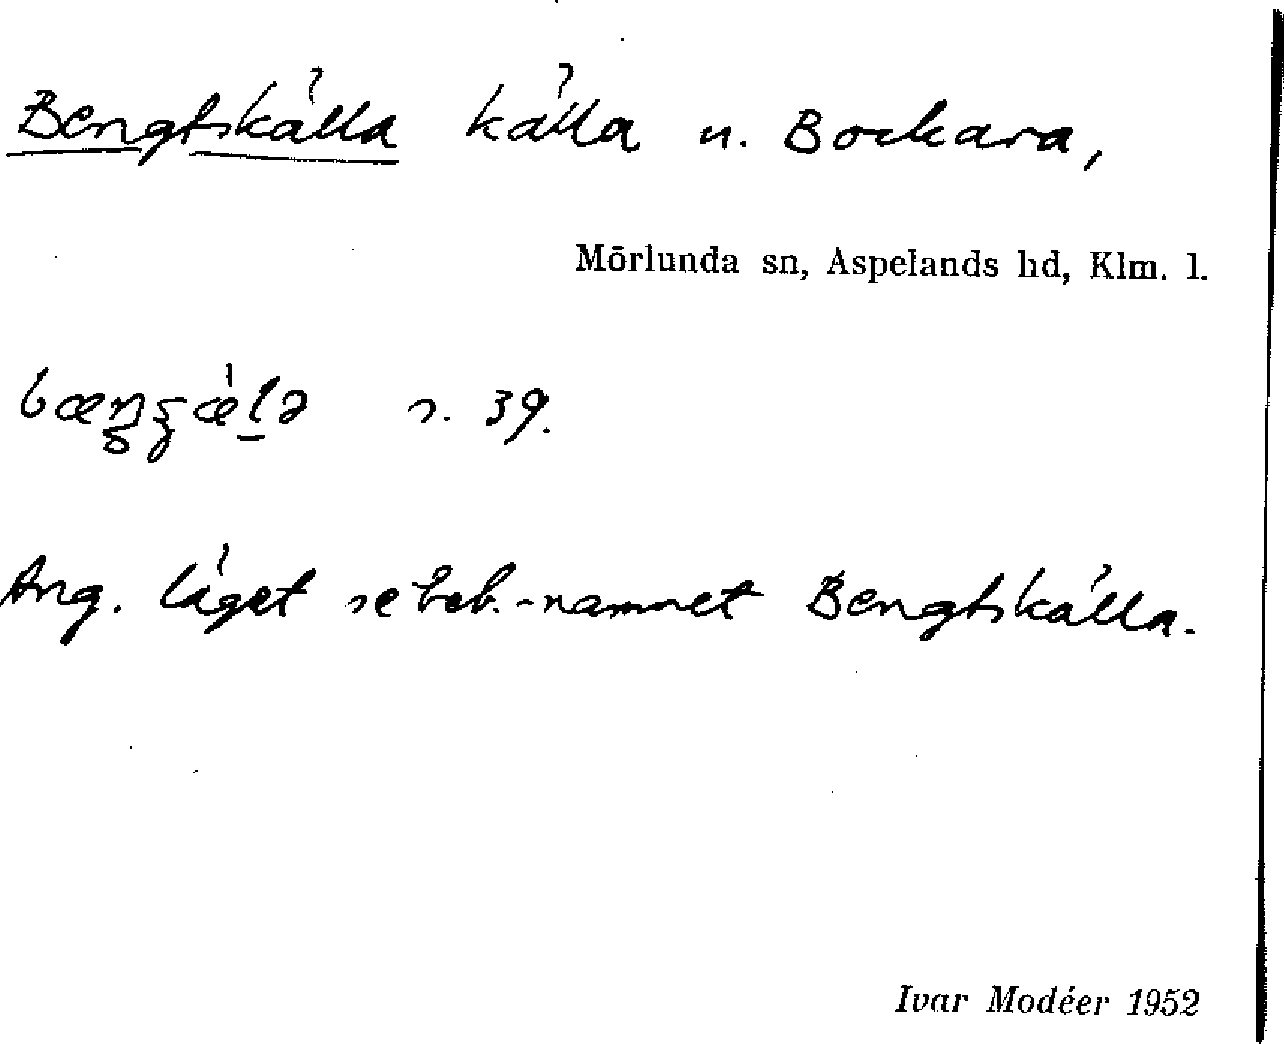 Bengtskälla källa n. Bockara,
Mörlunda sn, Aspelands hd, Klm. l.
s. 39.
Ang. läget se beb.-namnet Bengtskälla.
Ivar Modéer 1952